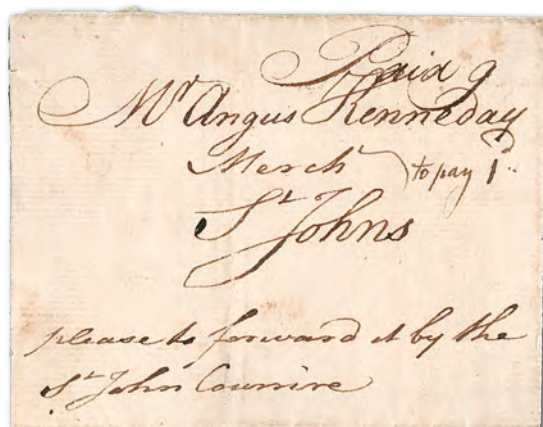 Paid 9
Mr Angus Kenneday
Mercht
to pay 1d
St Johns
please to forward it by the
St John Courrire